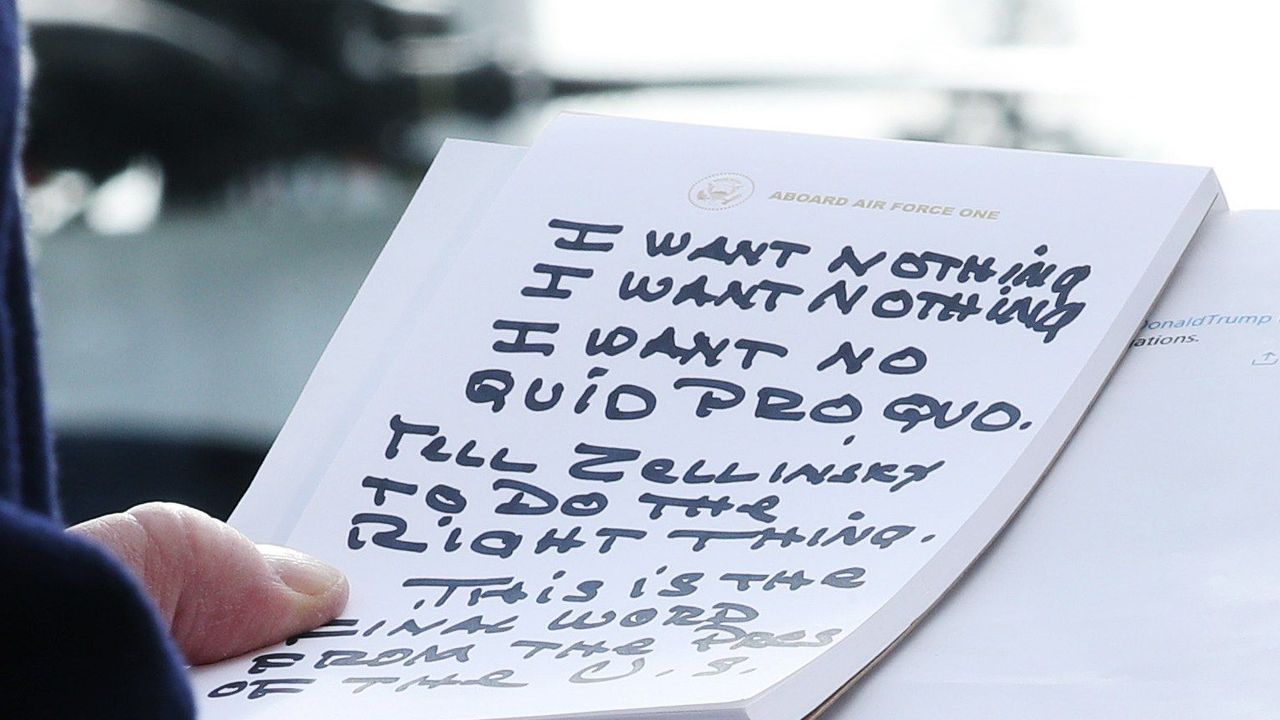 ABOARD AIR FORCE ONE
I WANT NOTHING
I WANT NOTHING
I WANT NO
QUID PRO QUO.
TELL ZELLINSKY
TO DO THE
RIGHT THING.
THIS IS THE
FINAL WORD
FROM THE PRES
OF THE U.S.
DonaldTrump
ations.